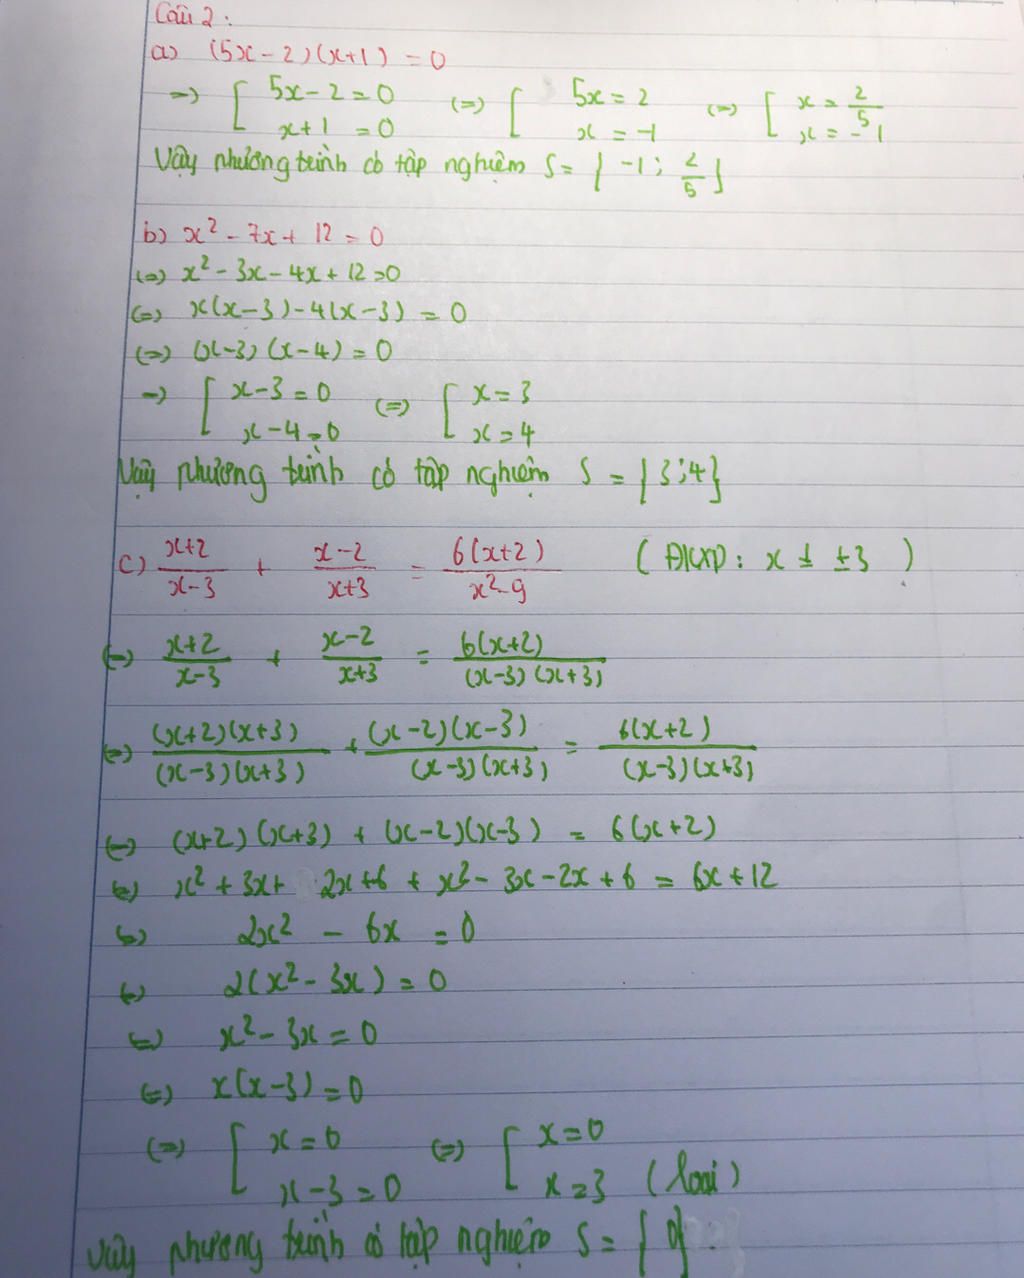 Câu 2:
a) (5x-2)(x+1) = 0
=> [ 5x-2=0 (=) [ 5x=2 (=) [ x=2/5
x+1=0 x=-1 x=-1
Vậy phương trình có tập nghiệm S={-1; 2/5}
b) x²-7x+12=0
(=) x²-3x-4x+12=0
(=) x(x-3)-4(x-3)=0
(=) (x-3)(x-4)=0
=> [ x-3=0 (=) [ x=3
x-4=0 x=4
Vậy phương trình có tập nghiệm S={3;4}
c) (x+2)/(x-3) + (x-2)/(x+3) = 6(x+2)/(x²-9) (ĐKXĐ: x ≠ ±3)
(=) (x+2)/(x-3) + (x-2)/(x+3) = 6(x+2)/((x-3)(x+3))
(=) (x+2)(x+3)/((x-3)(x+3)) + (x-2)(x-3)/((x-3)(x+3)) = 6(x+2)/((x-3)(x+3))
(=) (x+2)(x+3) + (x-2)(x-3) = 6(x+2)
(=) x²+3x+2x+6+x²-3x-2x+6=6x+12
(=) 2x²-6x=0
(=) 2(x²-3x)=0
(=) x²-3x=0
(=) x(x-3)=0
(=) [ x=0 (=) [ x=0
x-3=0 x=3 (loại)
Vậy phương trình có tập nghiệm S={0}